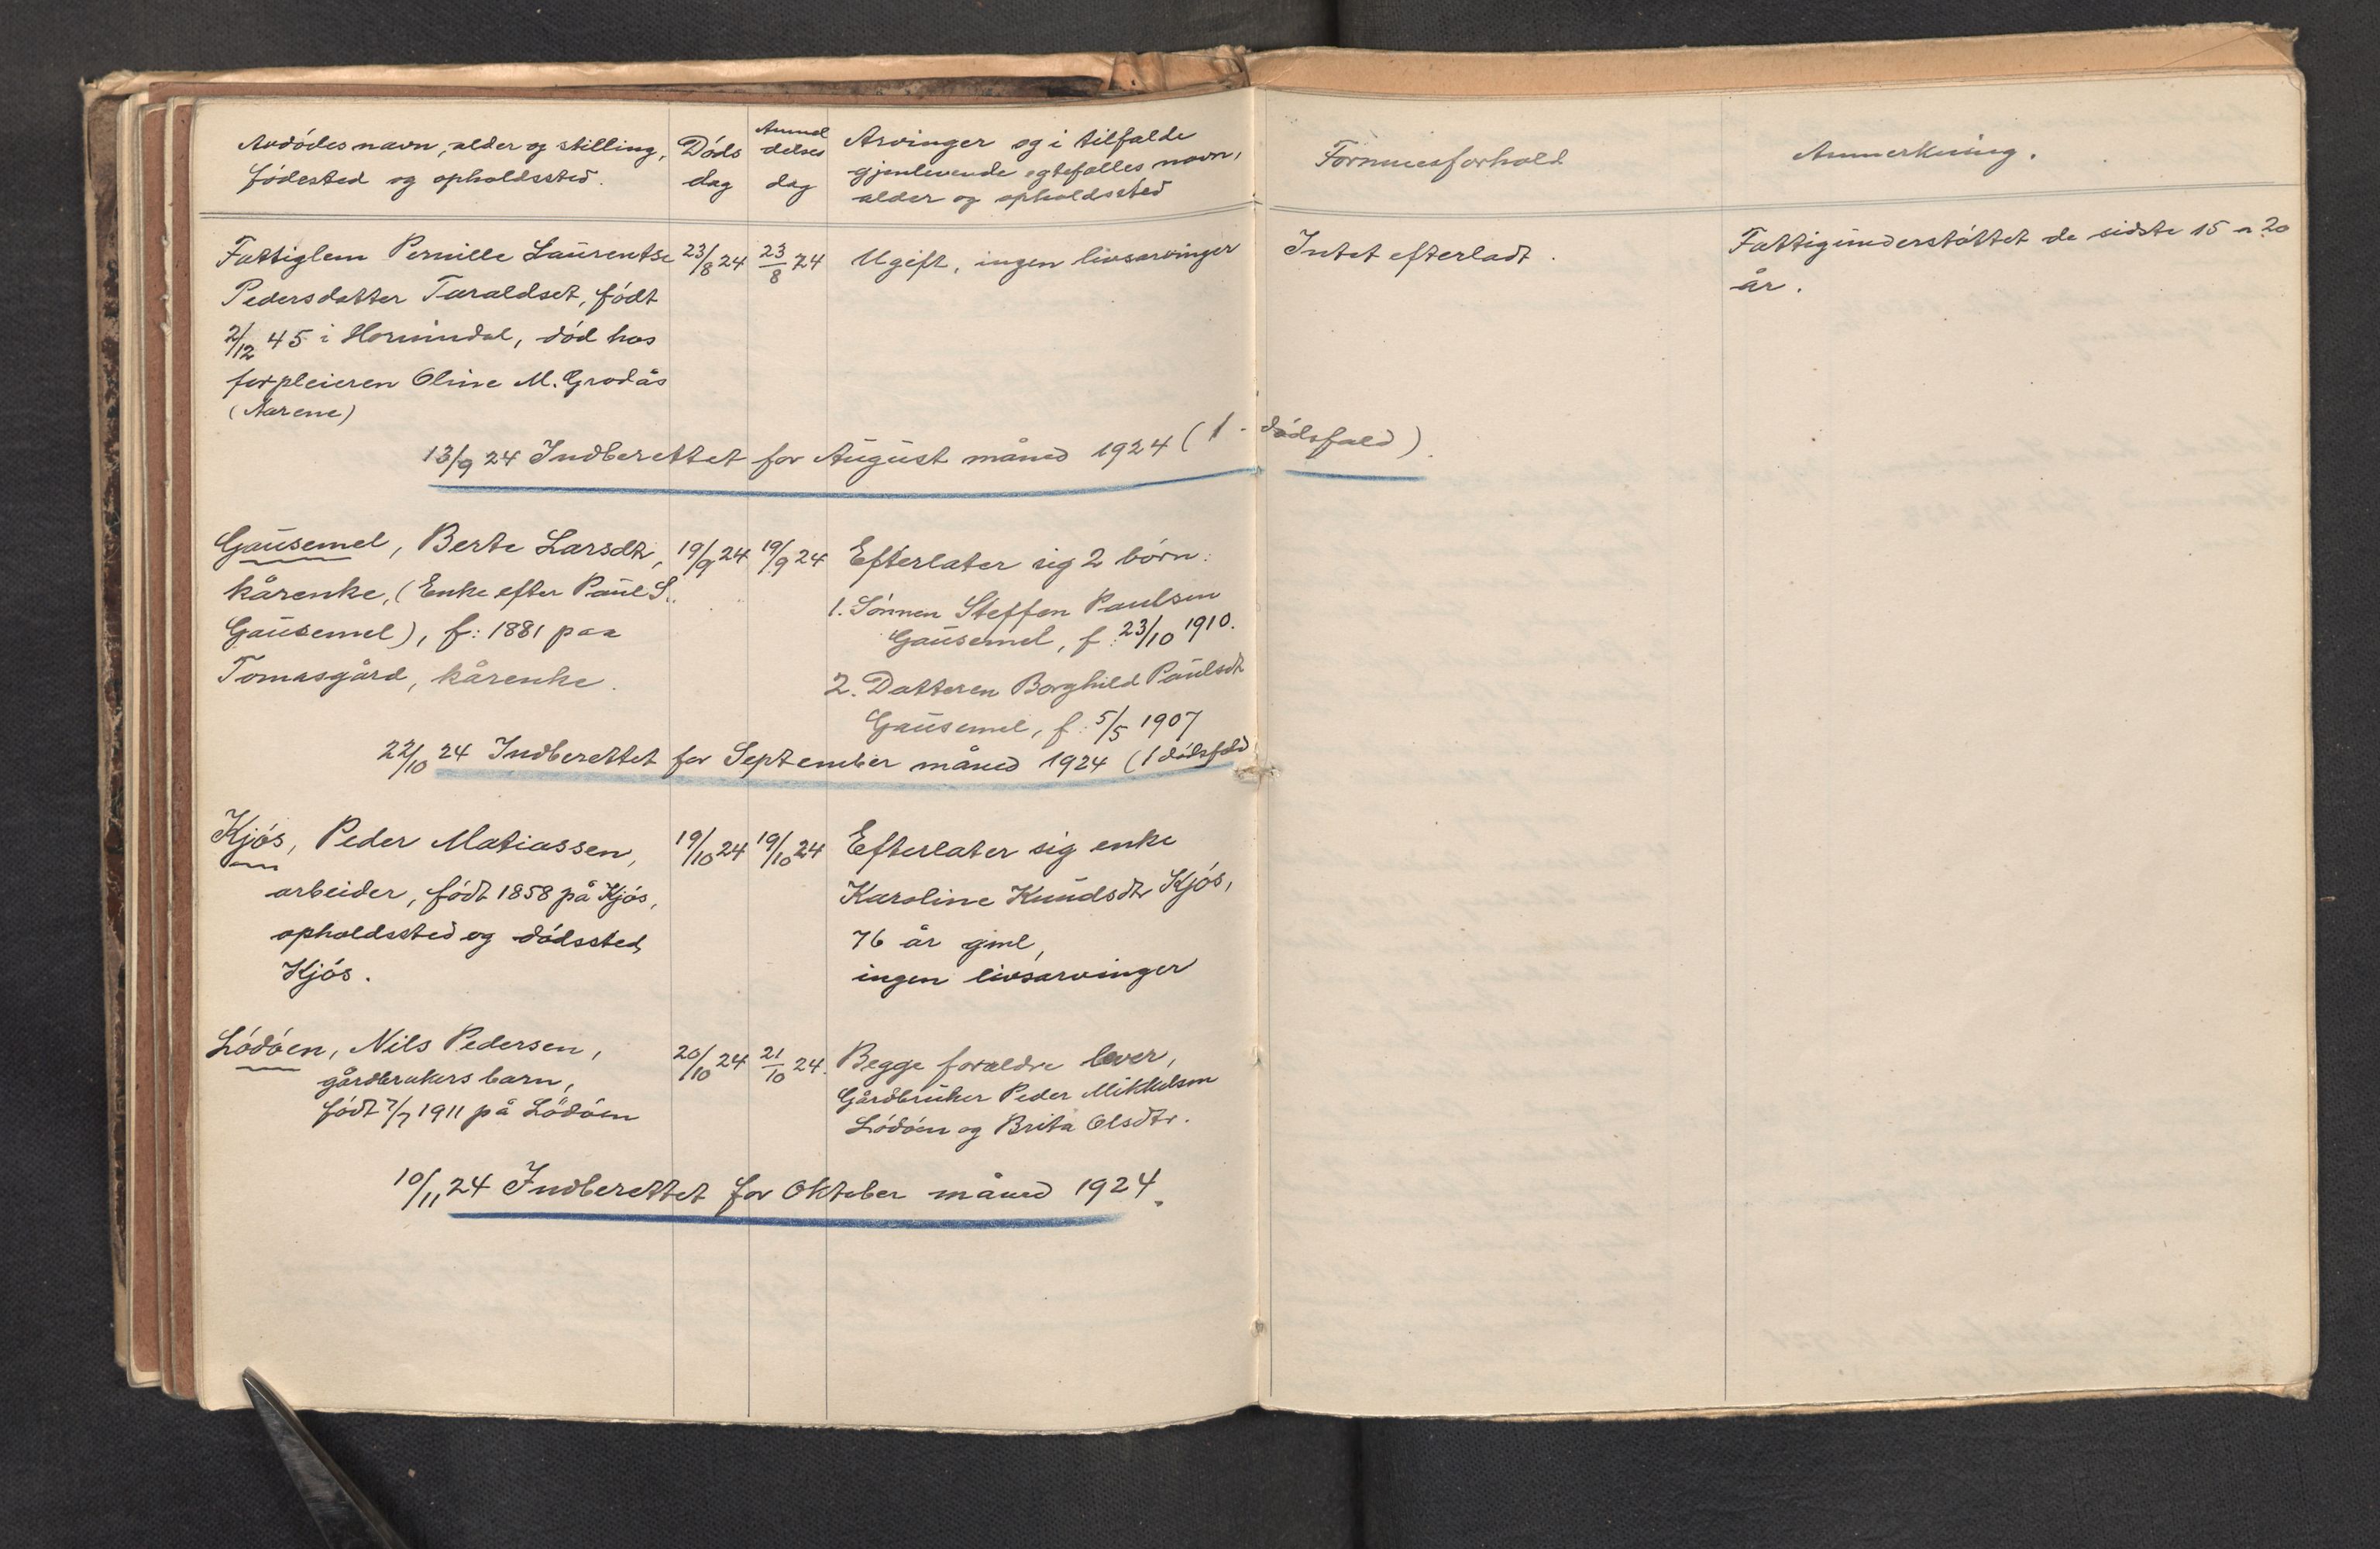 Avdødes navn, alder og stilling,
fødested og opholdssted.
Døds
dag
Anmel
delses
dag
Arvinger og i tilfælde
gjenlevende egtefælles navn,
alder og opholdssted
Formuesforhold
Anmerkning.
Fattiglem Pernille Laurentse
Pedersdatter Taraldset, født
2/12 45 i Hornindal, død hos
forpleieren Oline M. Grodås
(Aarene)
23/8 24
23/8 24
Ugift, ingen livsarvinger
Intet efterladt.
Fattigunderstøttet de sidste 15 a 20
år.
13/9 24 Indberettet for August måned 1924 (1 - dødsfald).
Gausemel, Berte Larsdtr,
kårenke, (Enke efter Paul S.
Gausemel), f: 1881 paa
Tomasgård, kårenke.
19/9 24
19/9 24
Efterlater sig 2 børn:
1. Sønnen Steffen Paulsen
Gausemel, f: 23/10 1910.
2. Datteren Borghild Paulsdt
Gausemel, f: 5/5 1907
22/10 24 Indberettet for September måned 1924 (1 dødsfald
Kjøs, Peder Matiassen,
arbeider, født 1858 på Kjøs,
opholdssted og dødssted
Kjøs.
19/10 24
19/10 24
Efterlater sig enke
Karoline Knudsdtr Kjøs,
76 år gml,
ingen livsarvinger
Lødøen, Nils Pedersen,
gårdbrukers barn,
født 7/7 1911 på Lødøen
20/10 24
21/10 24.
Begge forældre lever,
Gårdbruker Peder Mikkelsen
Lødøen og Brita Olsdtr.
10/11 24 Indberettet for Oktober måned 1924.